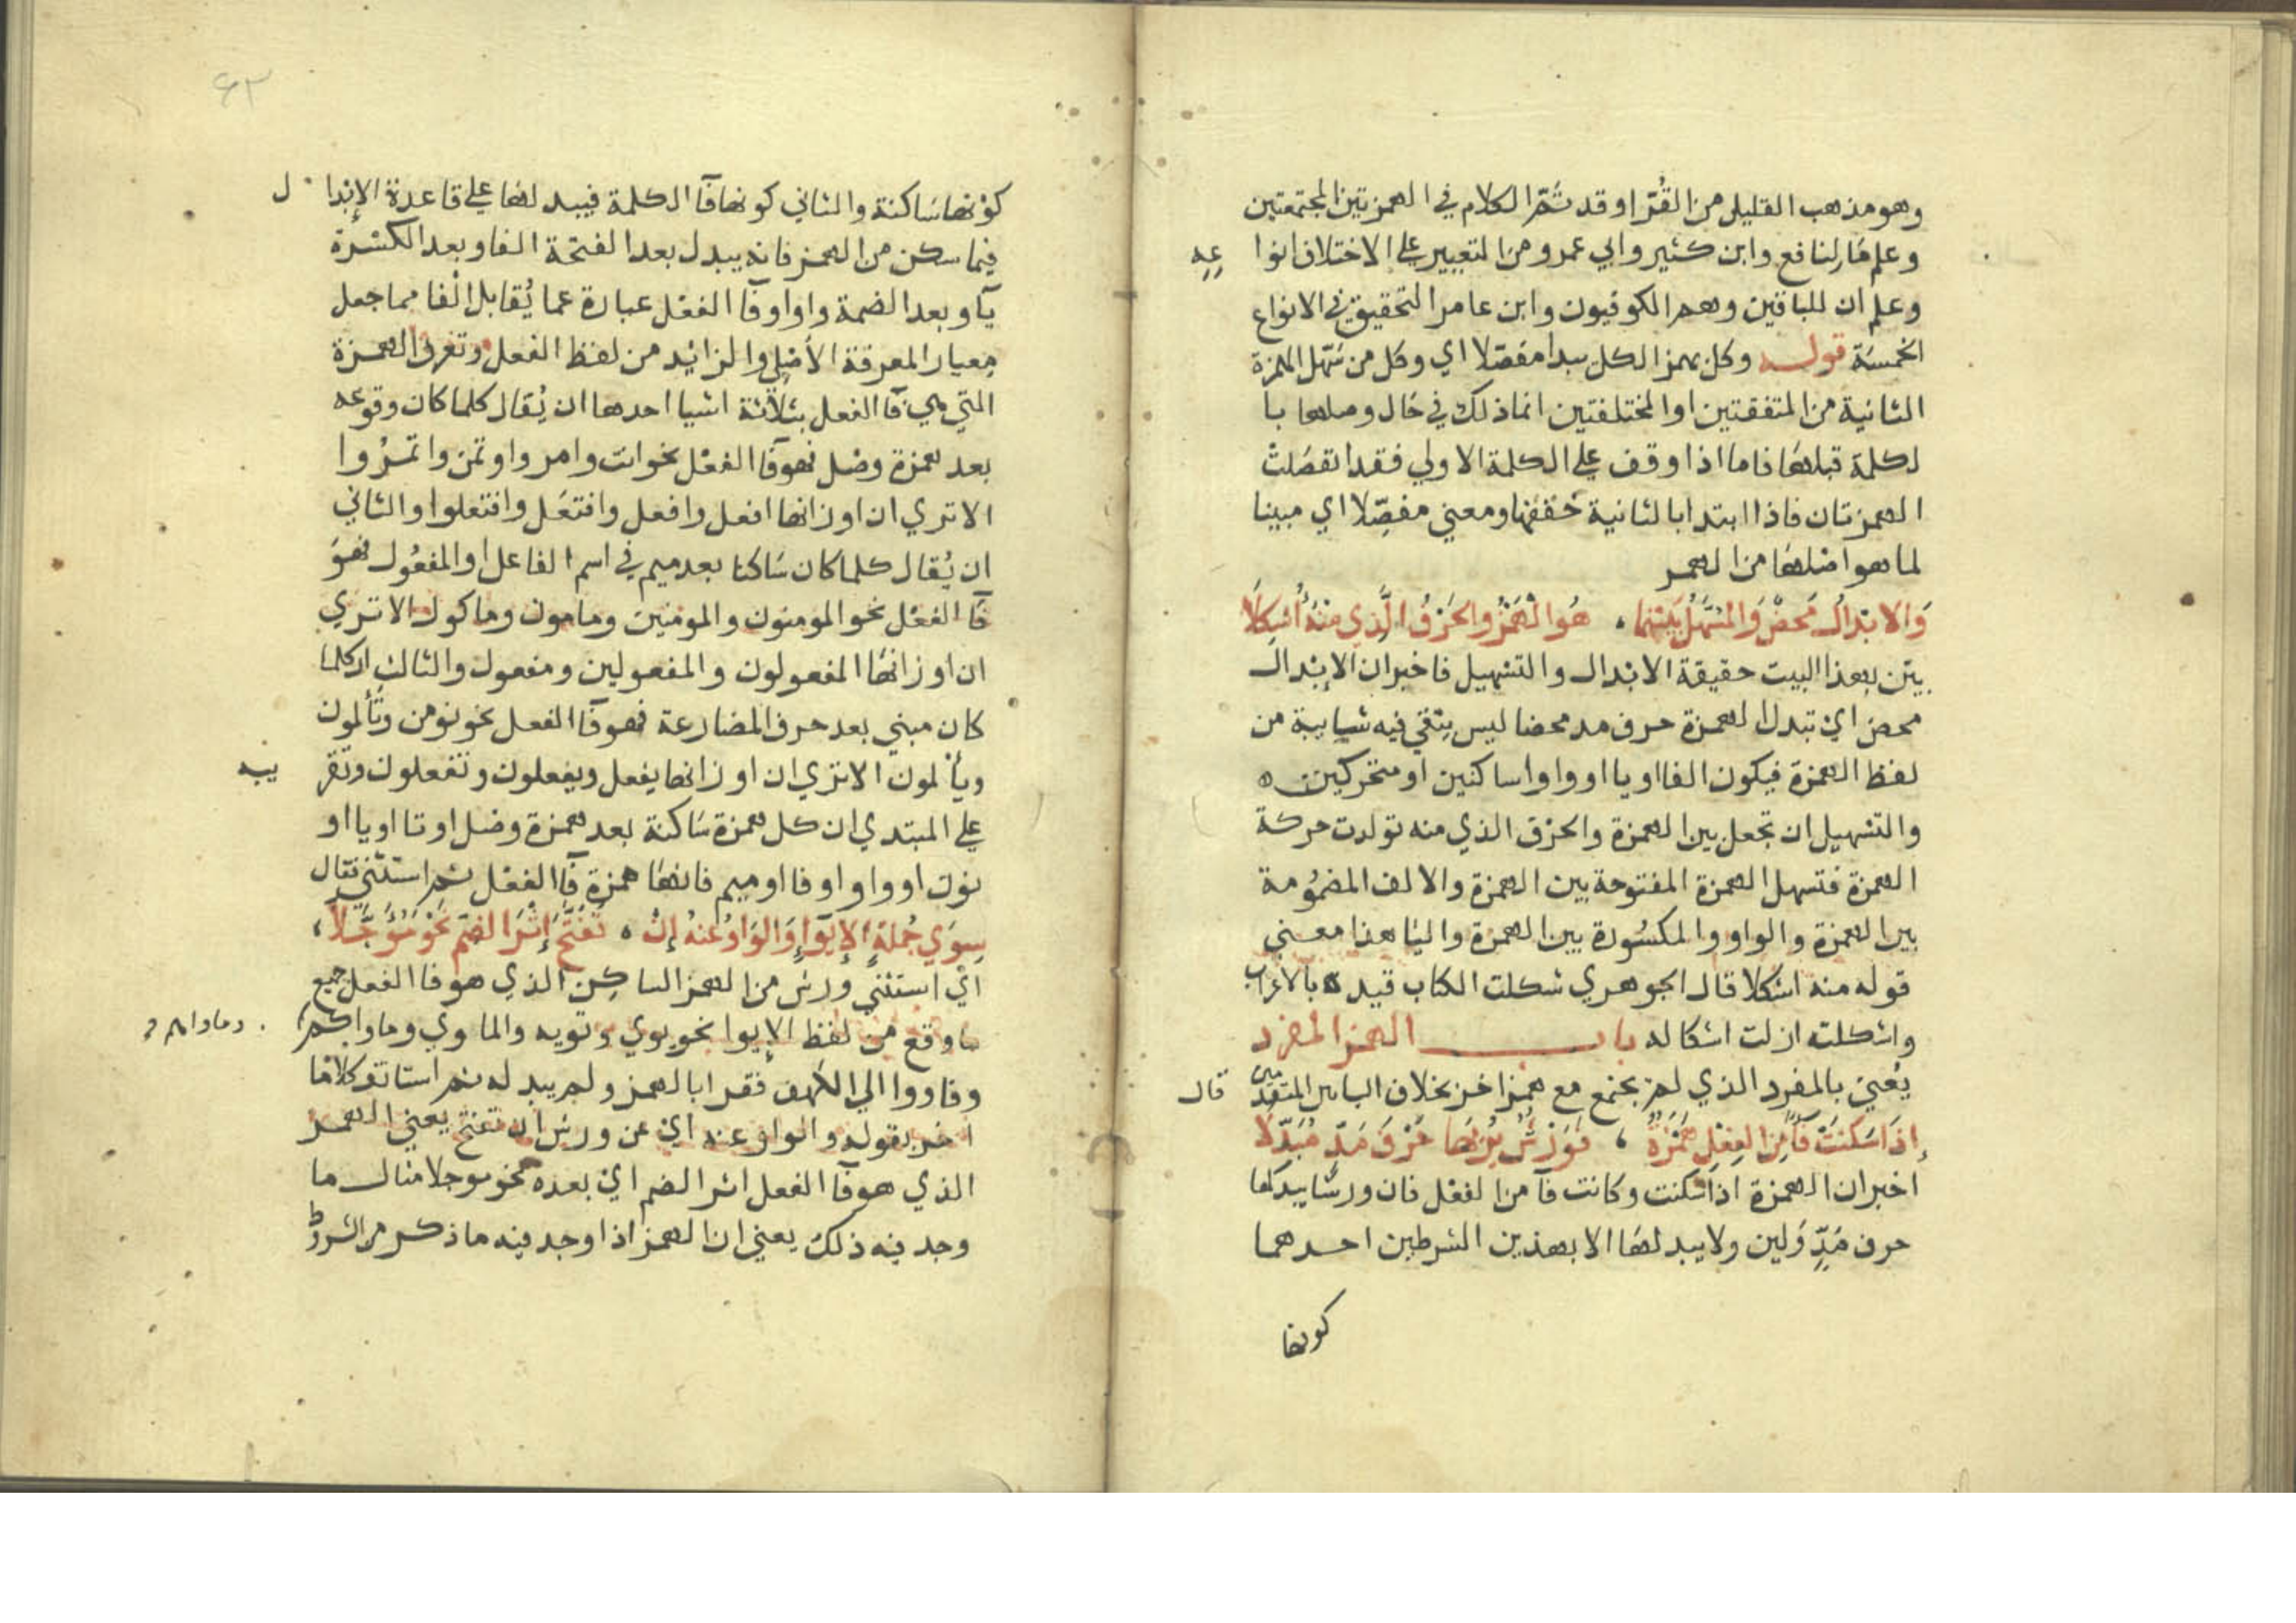 وهو مذهب القليل من القرا وقد تم الكلام في الهمزتين المجتمعتين
وعلم ما لنافع وابن كثير وابي عمرو من التعبير علي الاختلاف انوا عه
وعلم ان للباقين وهم الكوفيون وابن عامر التحقيق في الانواع
الخمسة قوله وكل بهمز الكل يبدا مفصلا اي وكل من سهل الهمزة
الثانية من المتفقتين او المختلفتين انما ذلك في حال وصلها با
لكلمة قبلها فاما اذا وقف علي الكلمة الاولي فقد انفصلت
الهمزتان فاذا ابتدا بالثانية حققها ومعني مفصِّلا اي مبينا
لما هو اصلها من الهمز
وَالابْدالُ مَحضٌ وَالمُسَهَّلُ بَيْنَ مَا ، هُوَ الْهَمْزُ والحَرْفُ الَّذِي مِنْهُ أُشْكِلَا
بيَّن بهذا البيت حقيقة الابدال والتسهيل فاخبر ان الإبدال
محض اي تبدل الهمزة حرف مد محضا ليس يبقي فيه شايبة من
لفظ الهمزة فيكون الفا او يا او واوا ساكنين او متحركين ه
والتسهيل ان تجعل بين الهمزة والحرف الذي منه تولدت حركة
الهمزة فتسهل الهمزة المفتوحة بين الهمزة والالف المضمُومة
بين الهمزة والواو والمكسُورة بين الهمزة واليا هذا معني
قوله منه اشكلا قال الجوهري شكلت الكتاب قيدته بالاعراب
واشكلته ازلت اشكاله باب الهمز المفرد
يُعني بالمفرد الذي لم يجتمع مع همز اخر بخلاف البابين المتقدمين قال
إذَا سَكَنَتْ فَآءً مِنَ الفِعْلِ هَمْزَةٌ ، فَوَرْشٌ يُرِيهَا حَرْفَ مَدٍّ مُبَدَّلَا
اخبر ان الهمزة اذا سكنت وكانت فآ من الفعل فان ورشا يبدلها
حرف مَدٍّ وَلين ولا يبدلها الا بهذين الشرطين احدهما
كونها
٦٣
كوْنها سَاكنة والثاني كونها فآ الكلمة فيبدلها علي قاعدة الإبدا ل
فيما سكن من الهمز فانه يبدل بعد الفتحة الفا وبعد الكسْرة
يآ وبعد الضمة واوا وفآ الفعل عبارة عما يُقابل الفا مما جعل
مِعيارا لمعرفة الأصلي والزائد من لفظ الفعل وتعرف الهمزة
التي هي فآ الفعل بثلاثة اشيا احدها ان يُقال كلما كان وقوعه
بعد همزة وصل فهو فآ الفعل نحو ائت وامر واوتمن واتمروا
الا تري ان اوزانها افعل وافعل وافتعَل وافتعلوا والثاني
ان يُقال كلما كان سَاكنا بعد ميم في اسم الفاعل او المفعُول فهوَ
فآ الفعْل نحو المومنون والمومنين ومامون وماكول الا تري
ان اوزانها المفعولون والمفعولين ومفعول والثالث ان كلما
كان مبني بعد حرف المضارعة فهو فآ الفعل نحو نومن وتَأْلمون
ويأْلمون الا تري ان اوزانها يفعل ويفعلون وتفعلون وتقر يبه
علي المبتدي ان كل همزة سَاكنة بعد همزة وصل او تا او يا او
نون او واو او فا او ميم فانها همزة فآ الفعْل ثم استثني فقال
سِوَي جُملَةِ الإيْوَاءِ وَالوَاوُ عَنهُ إنْ ، تُفَتَّحَ إِثْرَ الضَمِّ نَحْوَ مُؤَجَّلَا ،
اي استثني ورش من الهمز الساكِن الذي هو فا الفعل جميع
ما وقع من لفظ الإيوا نحو يوي وتويه والماوي وماواكم وماواهم
وفاووا الي الكهف فقرا بالهمز ولم يبدله ثم استانف كلاما
اخر بقوله والواو عنه اي عن ورش ان تفتح يعني الهمز
الذي هو فآ الفعل اثر الضم اي بعده نحو موجلا مثال ما
وجد فيه ذلك يعني ان الهمز اذا وجد فيه ما ذكر من الشروط